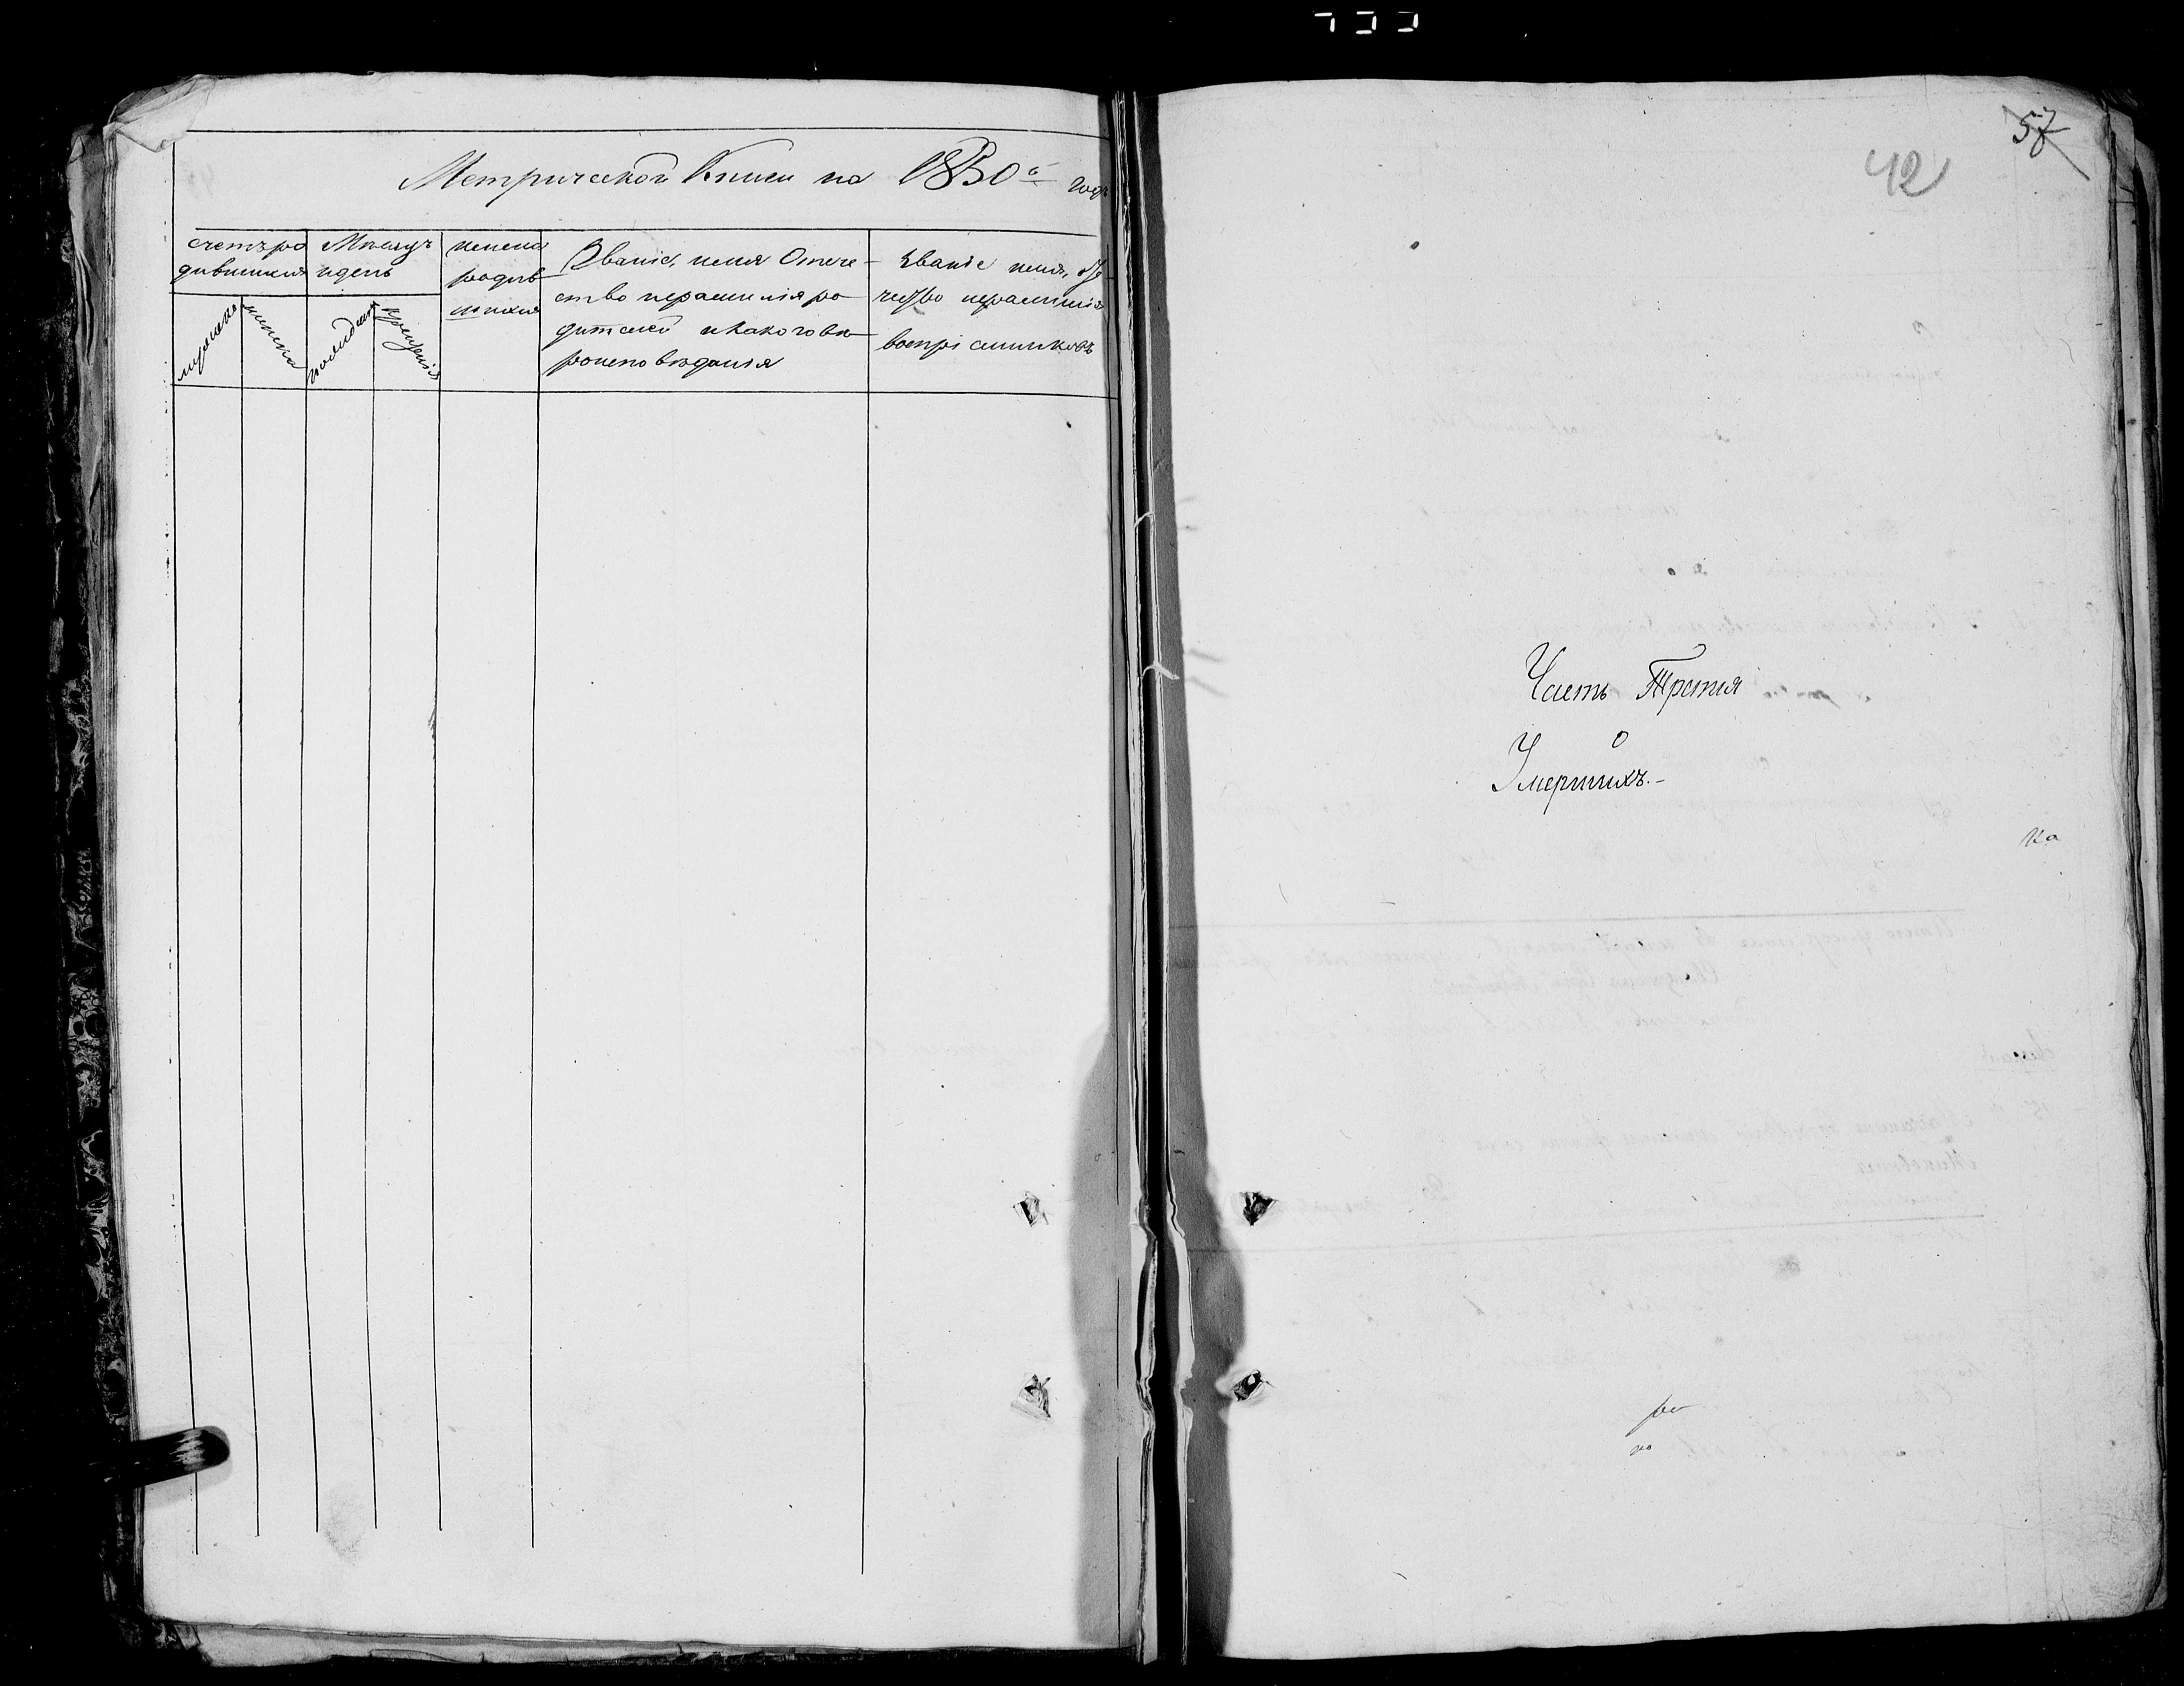 Метрической Книги на 1850й годъ
счетъ ро
дившихся
Мѣсяцъ
и день
имена
родив
шихся
Званіе, имя Отече-
ство и фамилія ро-
дителей и какого вѣ-
роисповѣданія
Званіе имя, От
чество и фамилія
воспріемниковъ
мужеска
женска
рожденія
крещенія
57
42
Часть Третия
О
Умершихъ.-
на
ро
но